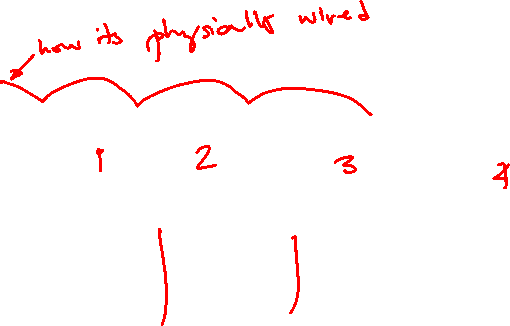 how its physically wired
1 2 3 4